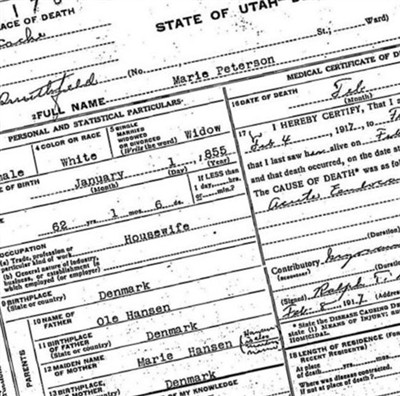 ACE OF DEATH
STATE OF UTAH
Cache
Smithfield
(No.
St.;
Ward)
2 FULL NAME Marie Peterson
PERSONAL AND STATISTICAL PARTICULARS
4 COLOR OR RACE
White
5 SINGLE
MARRIED
WIDOWED
OR DIVORCED
(Write the word)
Widow
OF BIRTH
January 1 , 855
(Month) (Day) (Year)
62 yrs 1 mos 6 ds.
If LESS than
1 day, hrs.
or min.?
OCCUPATION
(a) Trade, profession or
particular kind of work
(b) General nature of industry,
business, or establishment in
which employed (or employer)
Housewife
9 BIRTHPLACE
(State or country)
Denmark
PARENTS
10 NAME OF
FATHER
Ole Hansen
11 BIRTHPLACE
OF FATHER
(State or country)
Denmark
12 MAIDEN NAME
OF MOTHER
Marie Hansen
13 BIRTHPLACE
Denmark
MY KNOWLEDGE
MEDICAL CERTIFICATE OF D
16 DATE OF DEATH
Feb
(Month)
17 I HEREBY CERTIFY, That I
Feb 4, 1917, to
that I last saw h alive on
and that death occurred, on the date
The CAUSE OF DEATH* was as follo
Acute
(Duration)
Contributory
(Duration)
(Signed) Ralph T.
Feb. 8 1917 (Address)
* State the DISEASE CAUSING DE
state (1) MEANS OF INJURY;
HOMICIDAL.
18 LENGTH OF RESIDENCE (For
RECENT RESIDENTS)
At place
of death
Where was disease contracted,
if not at place of death?